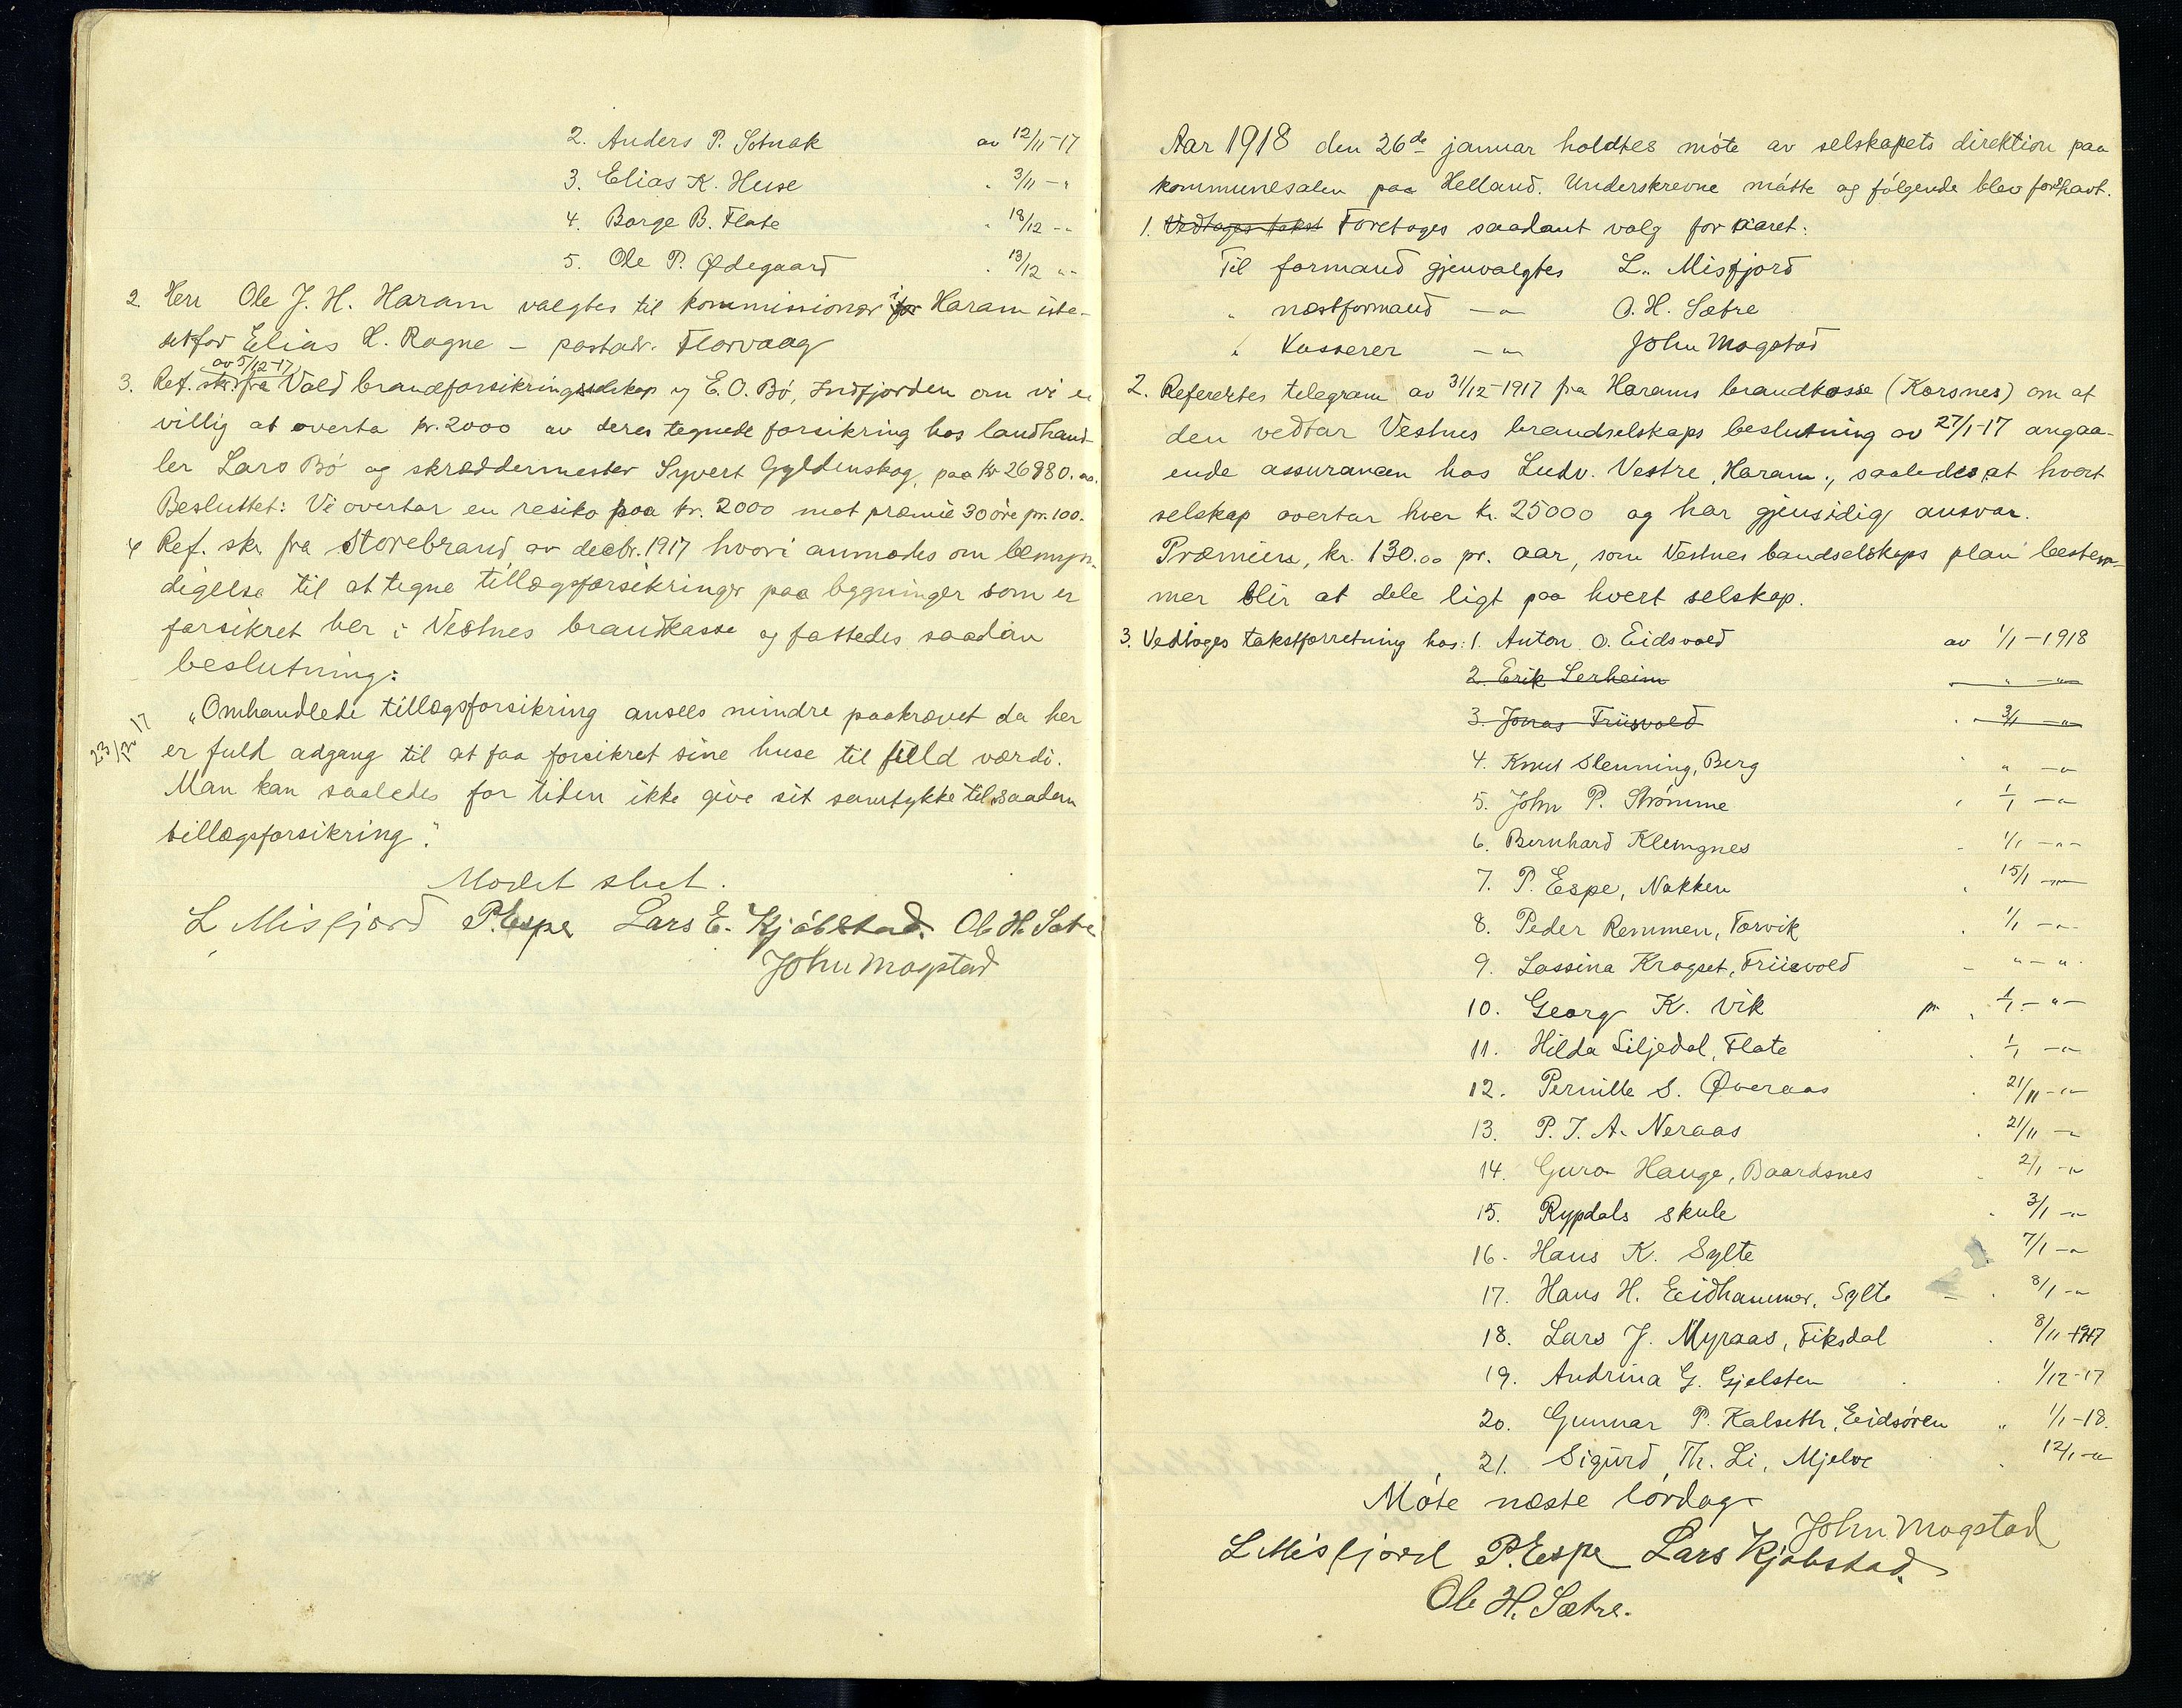 2. Anders P. Sotnak av 12/11-17
3. Elias K. Huse " 3/11 - "
4. Borge B. Flate " 18/12 - "
5. Ole P. Ødegaard " 13/12 " -
2. Herr Ole J. H. Haram valgtes til kommissionær i Haram iste-
detfor Elias H. Rogne – postadr. Florvaag
av 5/12-17
3. Ref. skr. fra Vold brandforsikringsselskap v/ E. O. Bö, Indfjorden om vi er
villig at overta kr. 2000 av deres tegnede forsikring hos landhand-
ler Lars Bö og skræddermester Syvert Gyldenskog, paa kr 26980.oo.
Besluttet: Vi overtar en resiko paa kr. 2000 mot præmie 30 öre pr. 100.
4 Ref. skr. fra Storebrand av decbr. 1917 hvori anmodes om bemyn-
digelse til at tegne tillægsforsikringer paa bygninger som er
forsikret her i Vestnes brandkasse og fattedes saadan
beslutning:
„Omhandlede tillægsforsikring ansees mindre paakrævet da her
23/12 17
er fuld adgang til at faa forsikret sine huse til fuld værdi.
Man kan saaledes for tiden ikke give sit samtykke til saadan
tillægsforsikring."
Mödet slut.
L Misfjord P. Espe Lars E. Kjöbstad. Ole H. Sætre
John Mogstad
Aar 1918 den 26de januar holdtes möte av selskapets direktion paa
kommunesalen paa Helland. Underskrevne mötte og fölgende blev forehavt.
1. Vedtoges takst Foretoges saadant valg for aaret:
Til formand gjenvalgtes L. Misfjord
" næstformand – " – O. H. Sætre
" Kasserer – " – John Mogstad
2. Referertes telegram av 31/12-1917 fra Harams brandkasse (Korsnes) om at
den vedtar Vestnes brandselskaps beslutning av 27/1-17 angaa-
ende assurancen hos Ludv. Vestre, Haram, saaledes, at hvert
selskap overtar hver kr. 25000 og har gjensidig ansvar.
Præmien, kr. 130.oo pr. aar, som Vestnes bandselskaps plan bestem-
mer blir at dele ligt paa hvert selskap.
3. Vedtoges takstforretning hos: 1. Anton O. Eidsvold av 1/1-1918
2. Erik Lerheim " - "
3. Jonas Friisvold " 3/1 - "
4. Knut Slenning, Berg " " - "
5. John P. Strømme " 1/1 - "
6. Bernhard Klemgnes " 1/1 - " -
7. P. Espe, Nakken " 15/1 - " -
8. Peder Remmen, Torvik " 1/1 - " -
9. Lassina Kragset, Friisvold - " - "
10. Georg K. Vik pr. " 1/1 - " -
11. Hilda Siljedal, Flate " 1/1 - "
12. Pernille S. Øveraas " 21/11 - " -
13. P. J. A. Neraas " 21/11 - "
14. Guro Hauge, Baardsnes " 2/1 - "
15. Rypdals skule " 3/1 - "
16. Hans K. Sylte " 7/1 - "
17. Hans H. Eidhammer, Sylte - " 8/1 - "
18. Lars J. Myraas, Fiksdal " 8/11-1917
19. Andrina G. Gjelsten " 1/12-17
20. Gunnar P. Kalseth, Eidsören " 1/1-18.
21. Sigurd Th. Li, Mjelve " 12/1 - "
Möte næste lördag
John Mogstad
L Misfjord P. Espe Lars Kjöbstad.
Ole H. Sætre.